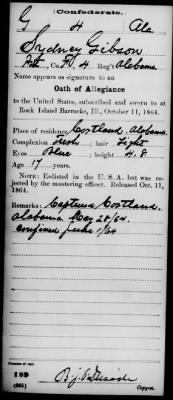 Confederate.
G 4 Ala
Sydney Gibson
Pvt, Co. H, 4 Reg't Alabama
Name appears as signature to an
Oath of Allegiance
to the United States, subscribed and sworn to at
Rock Island Barracks, Ill., October 11, 1864.
Place of residence Cortland, Alabama
Complexion Fresh; hair Light
Eyes Blue; height 4.8
Age 17 years.
NOTE: Enlisted in the U. S. A. but was rejected
by the mustering officer. Released Oct. 11,
1864.
Remarks: Captured Cortland,
Alabama May 28/64.
confined June 1/64
189
Copyist.